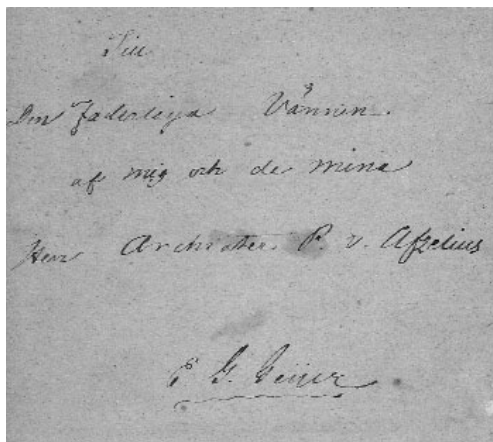 Till
Den Faderliga Vännen
af mig och de mina
Herr Archiater P. v. Afzelius
E G. Geijer